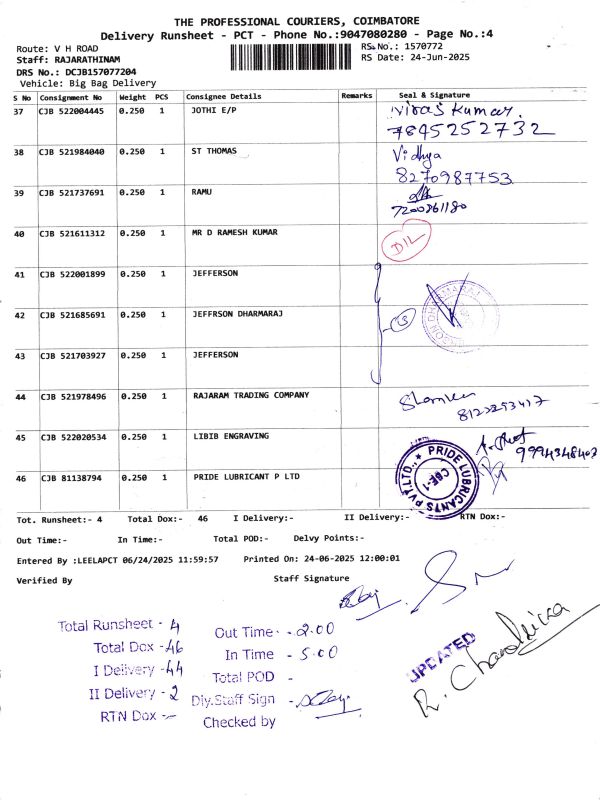 THE PROFESSIONAL COURIERS, COIMBATORE
Delivery Runsheet - PCT - Phone No.:9047080280 - Page No.:4
Route: V H ROAD
RS.No.: 1570772
Staff: RAJARATHINAM
RS Date: 24-Jun-2025
DRS No.: DCJB157077204
Vehicle: Big Bag Delivery
S No Consignment No Weight PCS Consignee Details Remarks Seal & Signature
37 CJB 522004445 0.250 1 JOTHI E/P Kumar.
7845252732
38 CJB 521984040 0.250 1 ST THOMAS Vidhya
8270987753
39 CJB 521737691 0.250 1 RAMU
7200861180
40 CJB 521611312 0.250 1 MR D RAMESH KUMAR D/L
41 CJB 522001899 0.250 1 JEFFERSON
42 CJB 521685691 0.250 1 JEFFRSON DHARMARAJ 3
43 CJB 521703927 0.250 1 JEFFERSON
44 CJB 521978496 0.250 1 RAJARAM TRADING COMPANY
45 CJB 522020534 0.250 1 LIBIB ENGRAVING
46 CJB 81138794 0.250 1 PRIDE LUBRICANT P LTD
PRIDE LUBRICANTS PVT.LTD.,
CBE-1
Tot. Runsheet:- 4 Total Dox:- 46 I Delivery:- II Delivery:- RTN Dox:-
Out Time:- In Time:- Total POD:- Delvy Points:-
Entered By :LEELAPCT 06/24/2025 11:59:57 Printed On: 24-06-2025 12:00:01
Verified By Staff Signature
Total Runsheet - 4
Total Dox - 46
I Delivery - 44
II Delivery - 2
RTN Dox -
Out Time - 2.00
In Time - 5.00
Total POD -
Dly.Staff Sign -
Checked by
UPDATED
R. Chandrica